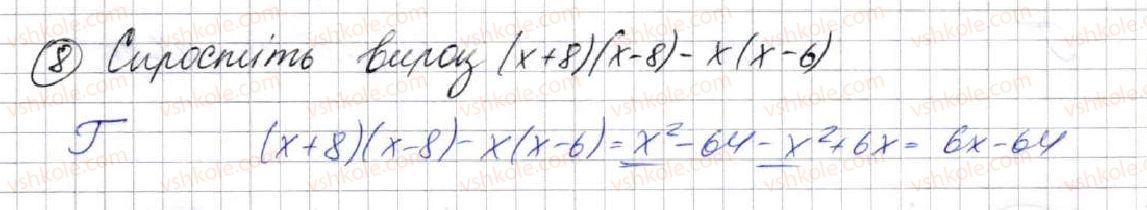 ⑧ Спростіть вираз (x+8)(x-8)-x(x-6)
Г (x+8)(x-8)-x(x-6)=x²-64-x²+6x=6x-64